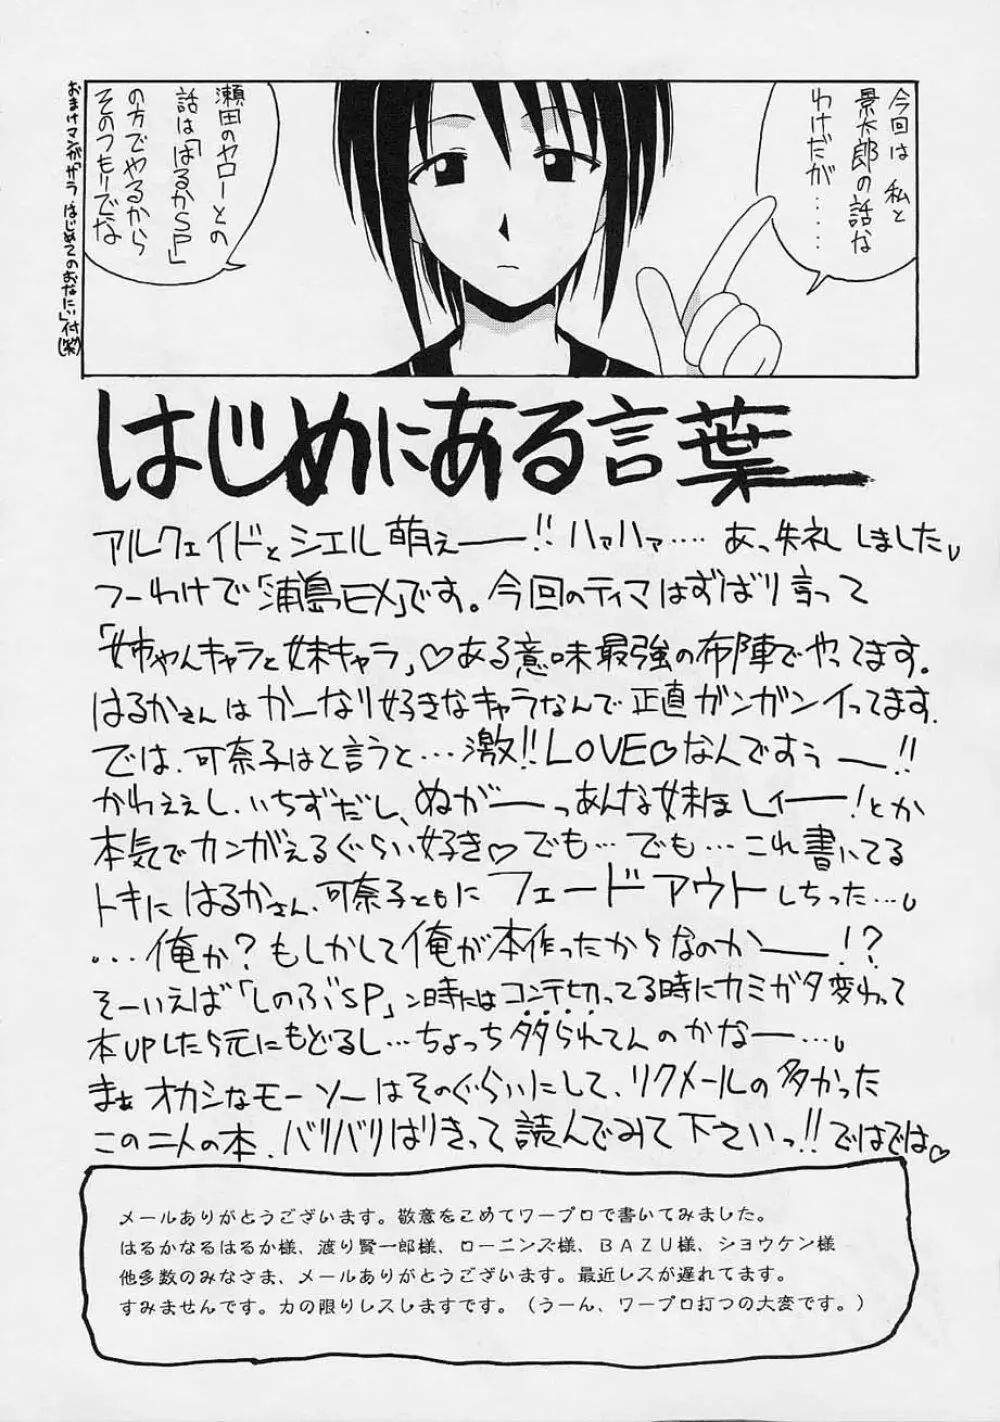 今回は 私と
景太郎の話な
わけだが‥‥‥
瀬田のヤローとの
話は「はるかSP」
の方でやるから
そのつもりでな
はじめにある言葉
アルクェイドとシエル萌えーー!! ハァハァ‥‥ あっ失礼しました
つーわけで「浦島EX」です。今回のティマはずばり言って
「姉ちゃんキャラと妹キャラ」♡ある意味最強の布陣でやってます。
はるかさんはかーなり好きなキャラなんで正直ガンガンイってます.
では、可奈子はと言うと…激!!LOVE♡なんですぅー!!
かわええし、いちずだし、ぬがーーっあんな妹ほしィー!とか
本気でカンがえるぐらい好き♡でも… でも…これ書いてる
トキにはるかさん、可奈子ともにフェードアウトしちった…
…俺か?もしかして俺が本作ったからなのかー!?
そーいえば「しのぶSP」ン時にはコンテ切ってる時にカミガタ変わって
本UPしたら元にもどるし…ちょっち祟られてんのかなー…
まぁオカシなモーソーはそのぐらいにして、リクメールの多かった
この二人の本、バリバリはりきって読んでみて下さいっ!!ではでは♡
メールありがとうございます。敬意をこめてワープロで書いてみました。
はるかなるはるか様、渡り賢一郎様、ローニンズ様、BAZU様、ショウケン様
他多数のみなさま、メールありがとうございます。最近レスが遅れてます。
すみませんです。力の限りレスしますです。（うーん、ワープロ打つの大変です。）